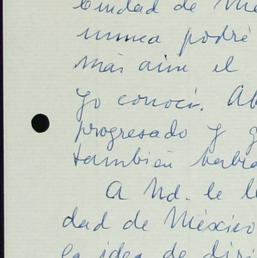 Ciudad de Mé
nunca podré
más aún el
yo conocí. Ab
progresado y g
también habrá
A Ud. le l
dad de México
la idea de diri